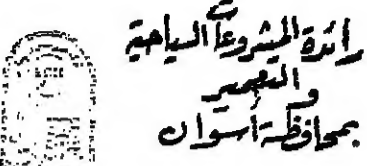 رائدة المشروعات السياحية
والتعمير
بمحافظة أسوان